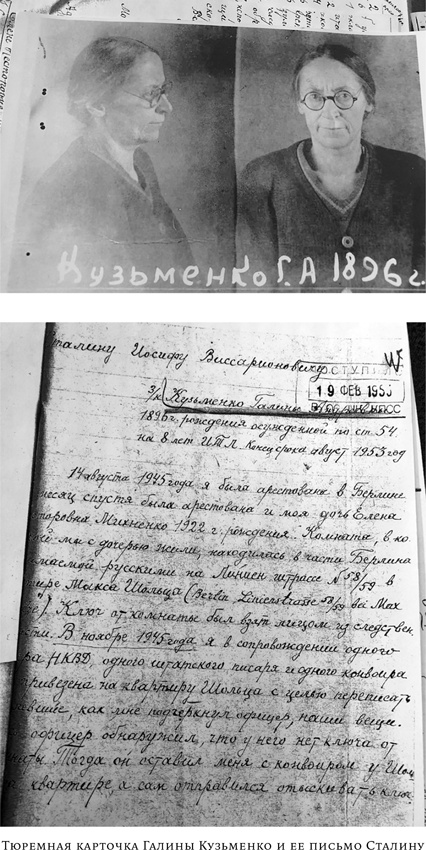 Кузьменко Г. А 1896 г.
талину Иосифу Виссарионовичу
ПОСТУПИЛО
19 ФЕВ 1953
з/к Кузьменко Галины
1896 г. рождения осужденной по ст. 54
на 8 лет ИТЛ. Конец срока август 1953 год
14 августа 1945 года я была арестована в Берлине
месяц спустя была арестована и моя дочь Елена
сторовна Михненко 1922 г. рождения. Комната, в ко
рой мы с дочерью жили, находилась в части Берлина
русскими на Линиен штрассе № 58/59 в
Макса Шольца (Berlin Linienstrasse 58/59 bei Max
Ключ от комнаты был взят у следствен
сти. В ноябре 1945 года я в сопровождении одного
ра НКВД, одного штатского писаря и одного конвоира
привезена на квартиру Шольца с целью переписать
как мне подчеркнул офицер, наши вещи.
офицер обнаружил, что у него нет ключа от
Тогда он оставил меня с конвоиром у Шоль
квартире, а сам отправился отыскивать ключ.
Тюремная карточка Галины Кузьменко и ее письмо Сталину